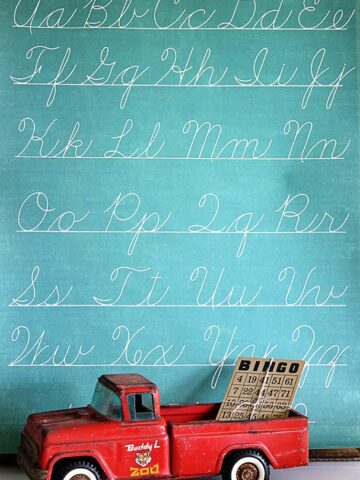 Aa Bb Cc Dd Ee
Ff Gg Hh Ii Jj
Kk Ll Mm Nn
Oo Pp Qq Rr
Ss Tt Uu Vv
Ww Xx Yy Zz
BINGO
4 19 41 51 61
7 22 47 57 71
13 25
Buddy L
ZOO